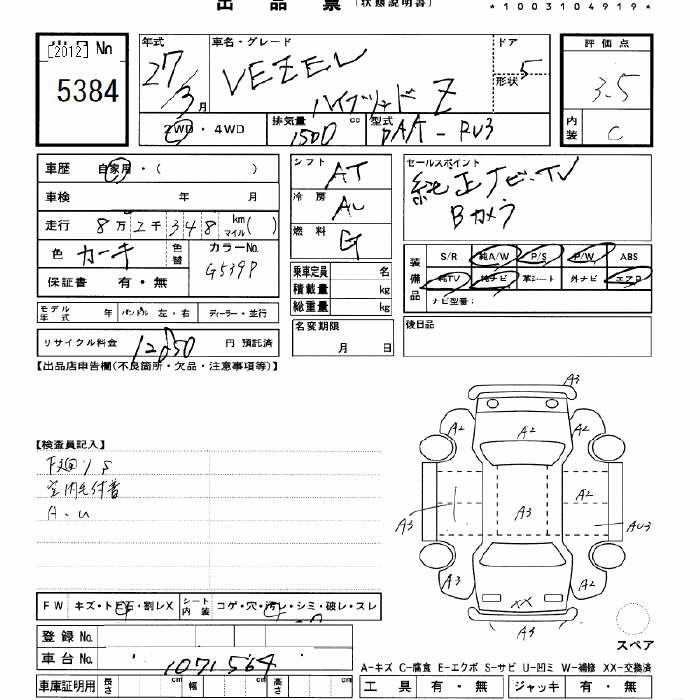 出品票 (状態説明書)
*1003104919*
[2012] No
5384
年式
27/3月
車名・グレード
VEZEL
ハイブリッド Z
ドア
5
形状
2WD・4WD
排気量 1500 cc
型式 DAA-RU3
評価点
3.5
内装
C
車歴 自家用・( )
車検 年 月
走行 8万2千348 km マイル( )
色 カーキ 色替
カラーNo. G539P
保証書 有・無
シフト AT
冷房
燃料 G
乗車定員 名
積載量 kg
総重量 kg
セールスポイント
純正ナビ・TV
Bカメラ
装備品
S/R 純A/W P/S P/W ABS
純TV 純ナビ 革シート 外ナビ エアロ
ナビ型番:
モデル年式 年 ハンドル 左・右 ディーラー・並行
リサイクル料金 円 預託済
名変期限
月 日
後日品
【出品店申告欄(不良箇所・欠品・注意事項等)】
【検査員記入】
A・U
A3
A2 A2 A2
A2
A3 A3 AU3
A3 A2
XX
A3
FW キズ・トビ石・割レX シート内装 コゲ・穴・汚レ・シミ・破レ・スレ
登録No.
車台No. 1071564
スペア
車庫証明用 長さ cm 幅 cm 高さ cm
A-キズ C-腐食 E-エクボ S-サビ U-凹ミ W-補修 XX-交換済
工具 有・無 ジャッキ 有・無